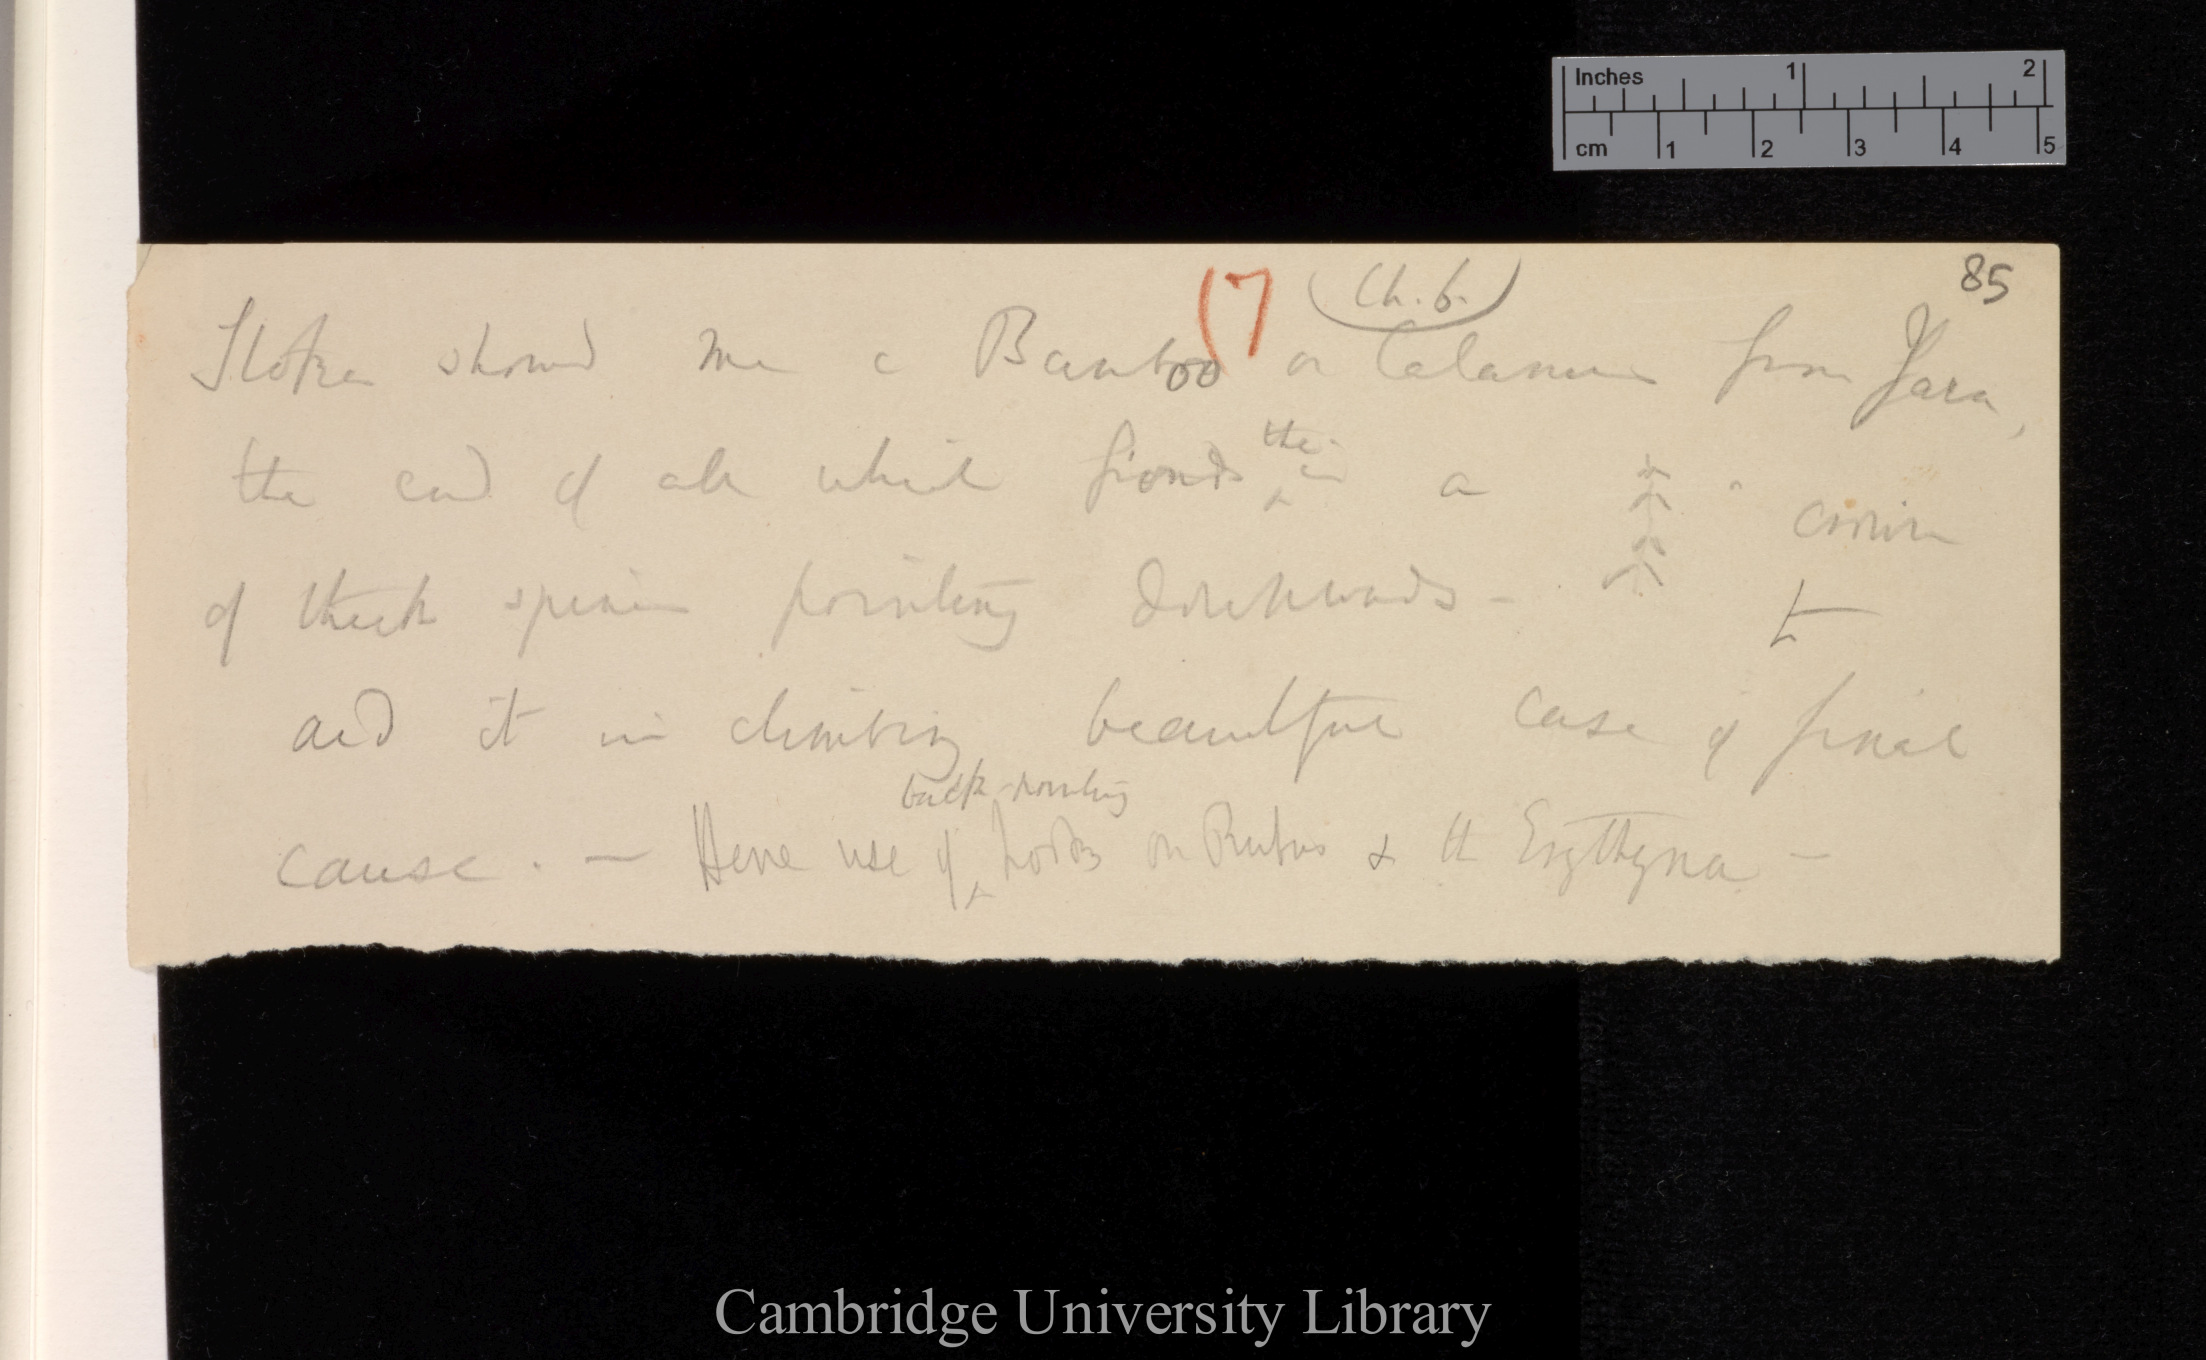 Inches 1 2
cm 1 2 3 4 5
85
(7 (Ch. 6.)
showed me a Bamboo or Calamus from Java,
the end of all which fronds there is a
of thick spines pointing downwards –
to
aid it in climbing beautiful case of final
back-pointing
cause. – Here use of ‸ hooks on Rubus & the Erythryna –
Cambridge University Library